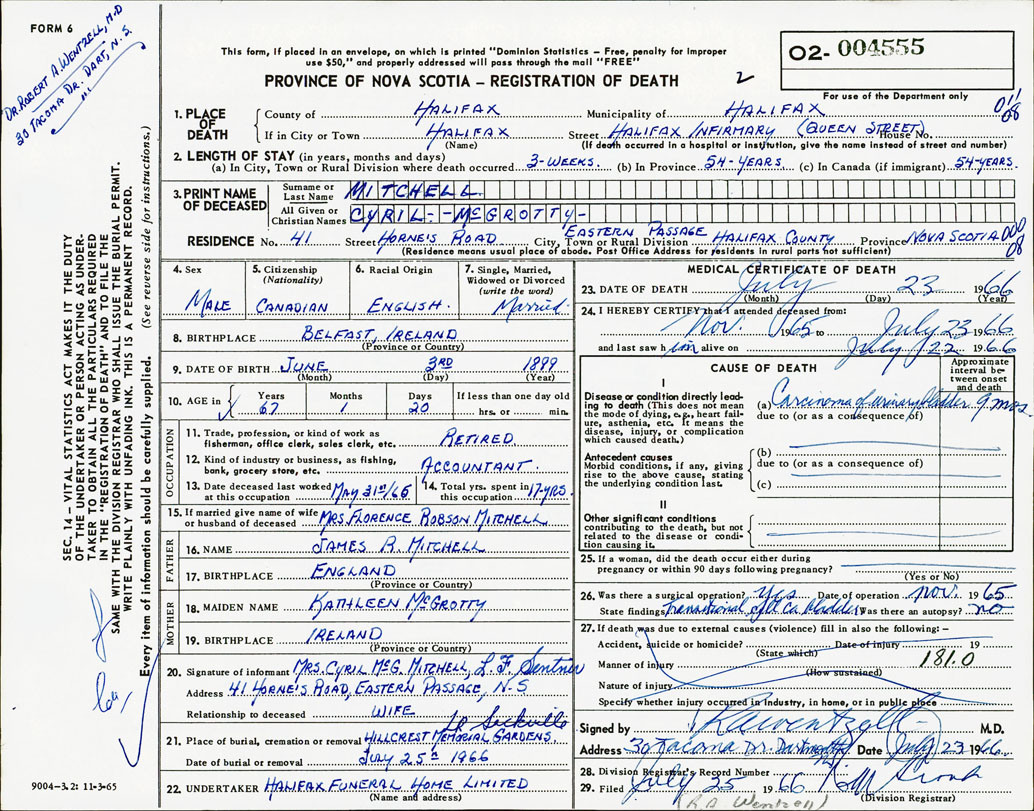 FORM 6
DR. ROBERT A. WENTZELL, M.D
30 TACOMA DR. DART, N.S.
This form, if placed in an envelope, on which is printed "Dominion Statistics – Free, penalty for improper
use $50," and properly addressed will pass through the mail "FREE"
PROVINCE OF NOVA SCOTIA – REGISTRATION OF DEATH
2
02- 004555
For use of the Department only
1. PLACE OF DEATH
County of HALIFAX Municipality of HALIFAX
If in City or Town HALIFAX Street HALIFAX INFIRMARY (QUEEN STREET) House No.
(Name) (If death occurred in a hospital or institution, give the name instead of street and number)
08
2. LENGTH OF STAY (in years, months and days)
(a) In City, Town or Rural Division where death occurred 3-WEEKS. (b) In Province 54-YEARS. (c) In Canada (if immigrant) 54-YEARS.
3. PRINT NAME OF DECEASED
Surname or Last Name MITCHELL
All Given or Christian Names CYRIL--McGROTTY-
RESIDENCE No. 41 Street HORNE'S ROAD City, Town or Rural Division EASTERN PASSAGE HALIFAX COUNTY Province NOVA SCOTIA
(Residence means usual place of abode. Post Office Address for residents in rural parts not sufficient)
08
4. Sex MALE
5. Citizenship (Nationality) CANADIAN
6. Racial Origin ENGLISH.
7. Single, Married, Widowed or Divorced (write the word) Married.
8. BIRTHPLACE BELFAST, IRELAND
(Province or Country)
9. DATE OF BIRTH JUNE 3RD 1899
(Month) (Day) (Year)
10. AGE in Years 67 Months 1 Days 20 If less than one day old hrs. or min.
OCCUPATION
11. Trade, profession, or kind of work as fisherman, office clerk, sales clerk, etc. RETIRED
12. Kind of industry or business, as fishing, bank, grocery store, etc. ACCOUNTANT.
13. Date deceased last worked at this occupation MAY 31st/65
14. Total yrs. spent in this occupation 17-YRS.
15. If married give name of wife or husband of deceased MRS. FLORENCE ROBSON MITCHELL
FATHER
16. NAME JAMES R. MITCHELL
17. BIRTHPLACE ENGLAND
(Province or Country)
MOTHER
18. MAIDEN NAME KATHLEEN McGROTTY
19. BIRTHPLACE IRELAND
(Province or Country)
20. Signature of informant MRS. CYRIL McG. MITCHELL, L. F. Sentner
Address 41 HORNE'S ROAD, EASTERN PASSAGE, N-S
Relationship to deceased WIFE
Lo Sackville
21. Place of burial, cremation or removal HILLCREST MEMORIAL GARDENS.
Date of burial or removal JULY 25th 1966
22. UNDERTAKER HALIFAX FUNERAL HOME LIMITED
(Name and address)
MEDICAL CERTIFICATE OF DEATH
23. DATE OF DEATH July 23 1966
(Month) (Day) (Year)
24. I HEREBY CERTIFY that I attended deceased from:
Nov. 1965 to July 23 1966
and last saw him alive on July 22 1966
CAUSE OF DEATH
Approximate interval between onset and death
I
Disease or condition directly leading to death (This does not mean the mode of dying, e.g., heart failure, asthenia, etc. It means the disease, injury, or complication which caused death.)
(a) Carcinoma of urinary bladder 9 mos
due to (or as a consequence of)
Antecedent causes
Morbid conditions, if any, giving rise to the above cause, stating the underlying condition last.
(b)
due to (or as a consequence of)
(c)
II
Other significant conditions contributing to the death, but not related to the disease or condition causing it.
25. If a woman, did the death occur either during pregnancy or within 90 days following pregnancy?
(Yes or No)
26. Was there a surgical operation? Yes Date of operation Nov. 1965
State findings Transitional cell Ca bladder Was there an autopsy? no
27. If death was due to external causes (violence) fill in also the following: –
Accident, suicide or homicide? Date of injury 19
(State which)
Manner of injury 181.0
(How sustained)
Nature of injury
Specify whether injury occurred in industry, in home, or in public place
Signed by RAWentzell M.D.
Address 30 Tacoma Dr. Dartmouth NS Date July 23 1966
28. Division Registrar's Record Number
29. Filed July 25 1966
(Division Registrar)
(R A Wentzell)
SEC. 14 – VITAL STATISTICS ACT MAKES IT THE DUTY
OF THE UNDERTAKER OR PERSON ACTING AS UNDER-
TAKER TO OBTAIN ALL THE PARTICULARS REQUIRED
IN THE "REGISTRATION OF DEATH" AND TO FILE THE
SAME WITH THE DIVISION REGISTRAR WHO SHALL ISSUE THE BURIAL PERMIT.
WRITE PLAINLY WITH UNFADING INK. THIS IS A PERMANENT RECORD.
Every item of information should be carefully supplied. (See reverse side for instructions.)
9004–3.2: 11-3-65